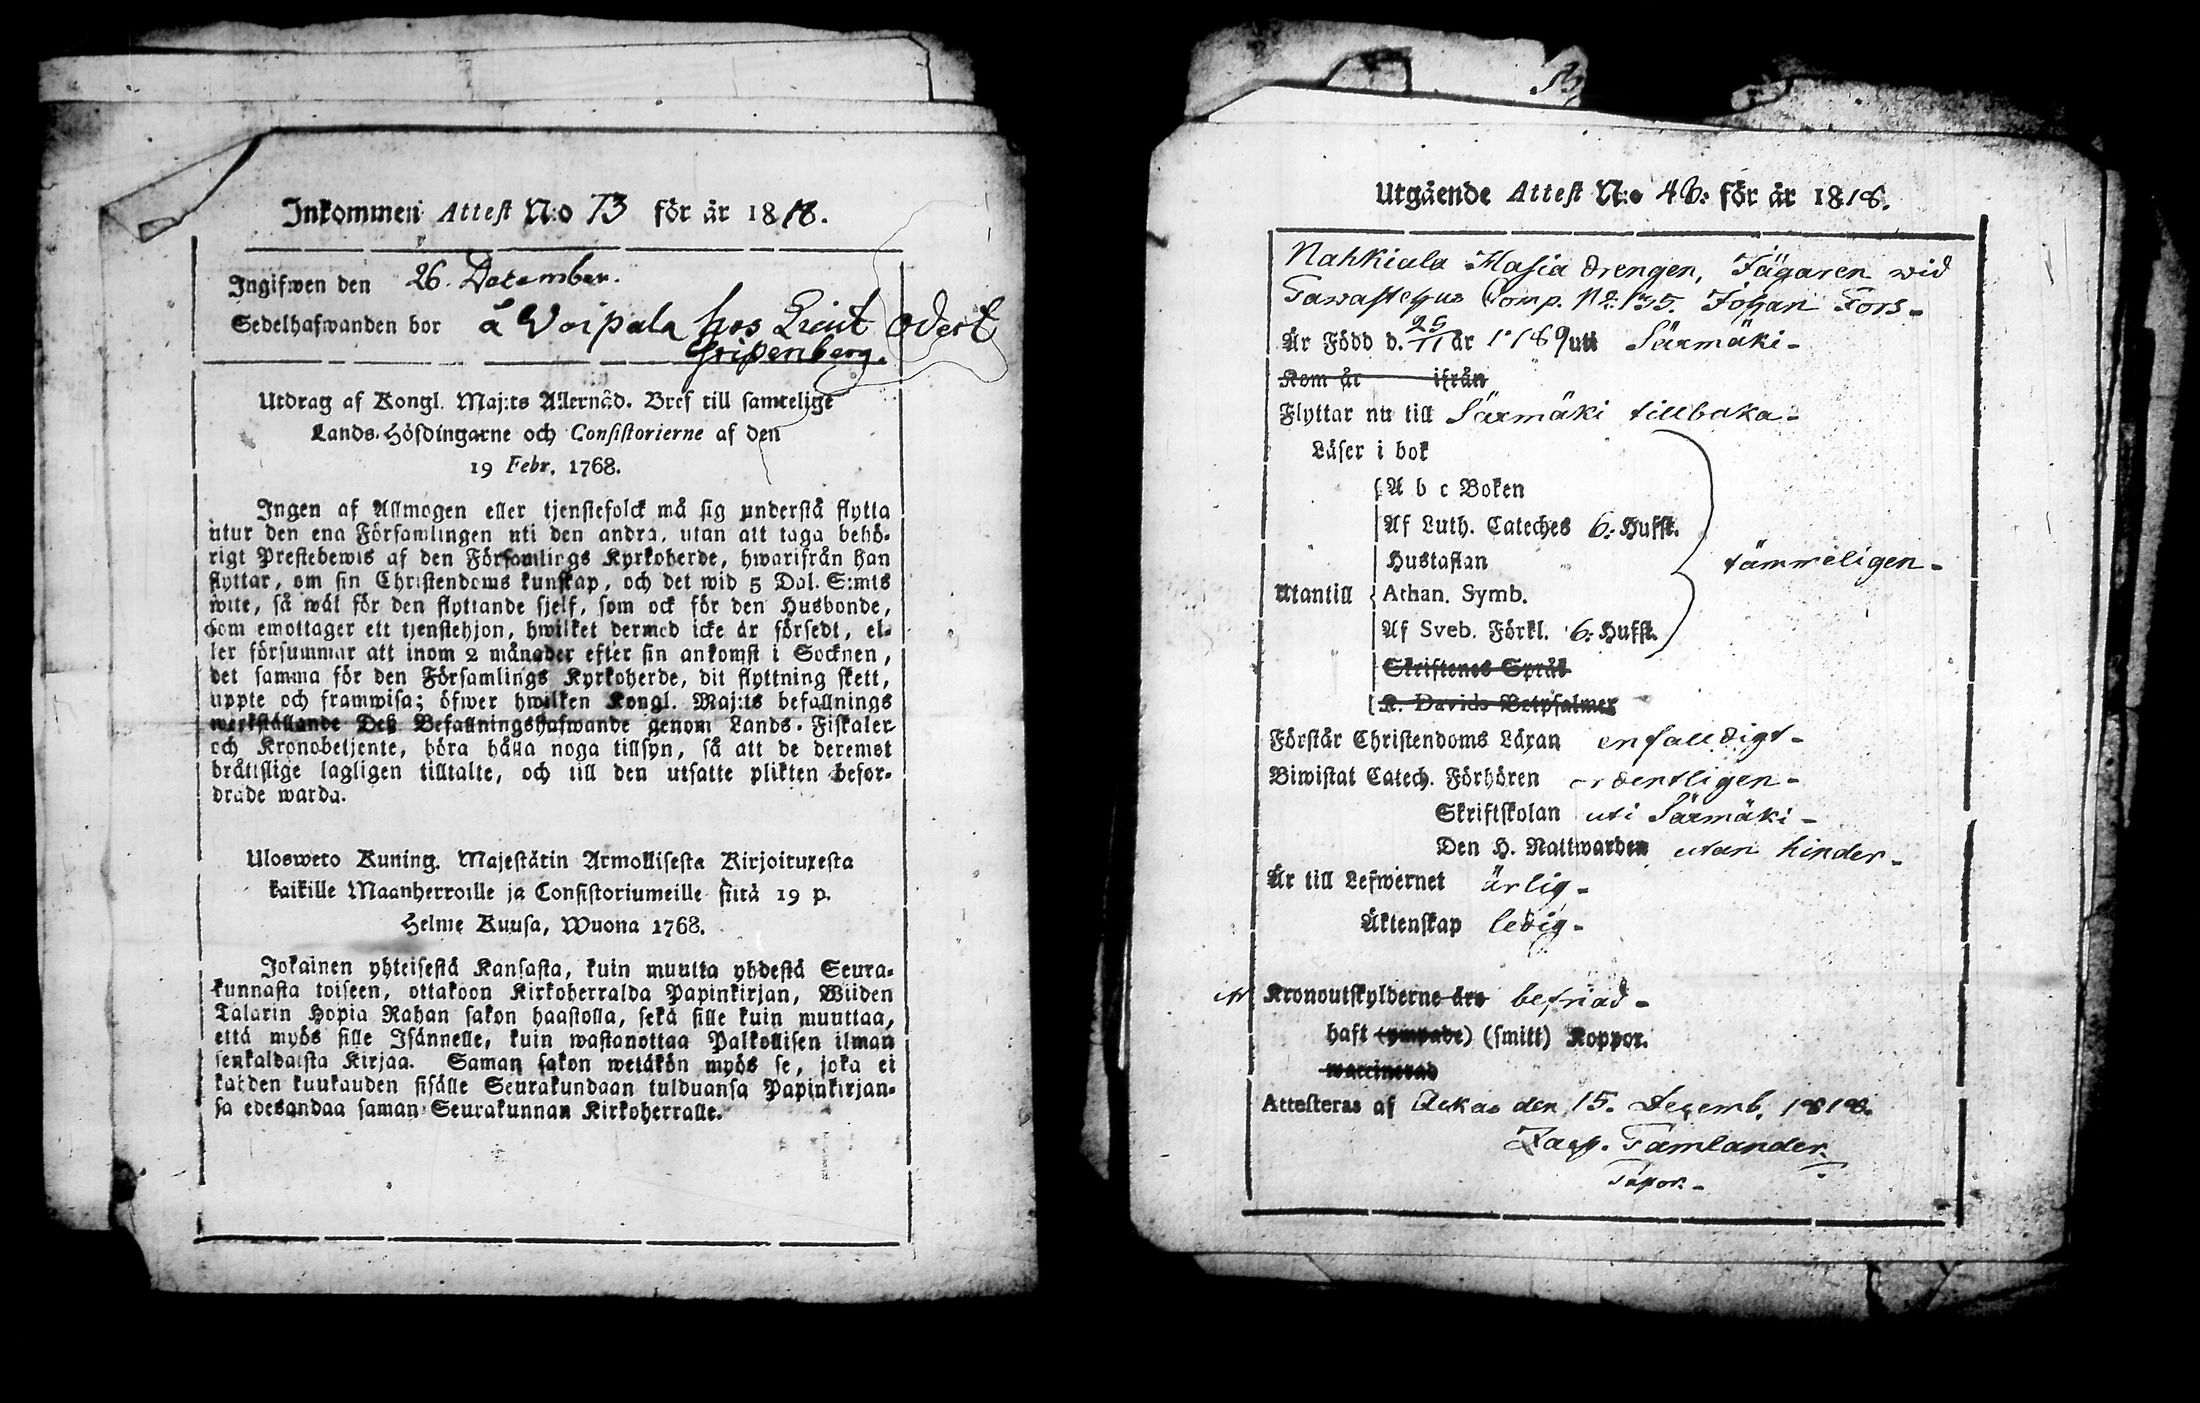 Inkommen Attest N:o 73 för år 1818.
Ingifwen den 26. December.
Sedelhafwanden bor å Woipala hos
Gripenberg.
Utdrag af Kongl. Maj:ts Allernåd. Bref till samtelige
Lands-Höfdingarne och Consistorierne af den
19 Febr. 1768.
Ingen af Allmogen eller tjenstefolck må sig understå flytta
utur den ena Församlingen uti den andra, utan att taga behö-
rigt Prestebewis af den Församlings Kyrkoherde, hwarifrån han
flyttar, om sin Christendoms kunskap, och det wid 5 Dal. S:mts
wite, så wäl för den flyttande sjelf, som ock för den Husbonde,
som emottager ett tjenstehjon, hwilket dermed icke är försedt, el-
ler försummar att inom 2 månader efter sin ankomst i Socknen,
det samma för den Församlings Kyrkoherde, dit flyttning skett,
uppte och framwisa; öfwer hwilken Kongl. Maj:ts befallnings
werkställande Deß Befallningshafwande genom Lands-Fiskaler
och Kronobetjente, böra hålla noga tillsyn, så att de deremot
bråttslige lagligen tilltalte, och till den utsatte plikten befor-
drade warda.
Ulosweto Kuning. Majestätin Armollisesta Kirjoituxesta
kaikille Maanherroille ja Consistoriumeille siitä 19 p.
Helme Kuusa, Wuona 1768.
Jokainen yhteisestä Kansasta, kuin muutta yhdestä Seura-
kunnasta toiseen, ottakoon Kirkoherralda Papinkirjan, Wiiden
Talarin Hopia Rahan sakon haastolla, sekä sille kuin muuttaa,
että myös sille Isännelle, kuin wastanottaa Palkollisen ilman
senkaldaista Kirjaa. Saman sakon wetäkön myös se, joka ei
kahden kuukauden sisälle Seurakundaan tulduansa Papinkirjan-
sa edesandaa saman Seurakunnan Kirkoherralle.
Utgående Attest N:o 46: för år 1818.
Nahkiala Masia drengen, Jägaren wid
Tawastehus Comp. No 135. Johan Fors-
Är Född d. 29/11 år 1789 uti Säxmäki-
Kom år ifrån
Flyttar nu till Säxmäki tillbaka-
Läser i bok
A b c Boken
Af Luth. Cateches 6: Hufst.
Hustaflan
tämmeligen-
Utantill Athan. Symb.
Af Sveb. Förkl. 6: Hufst.
Skriftenes Språk
K. Davids Betpsalmer
Förstår Christendoms Läran enfalldigt-
Biwistat Catech. Förhören ordentligen-
Skriftskolan uti Säxmäki-
Den H. Nattwarden utan hinder-
Är till Lefwernet ärlig-
Äktenskap ledig-
Kronoutskylderne äro befriad-
haft (ympade) (smitt) Koppor.
waccinerad
Attesteras af Ackas den 15. Decemb. 1818.
Tamlander.